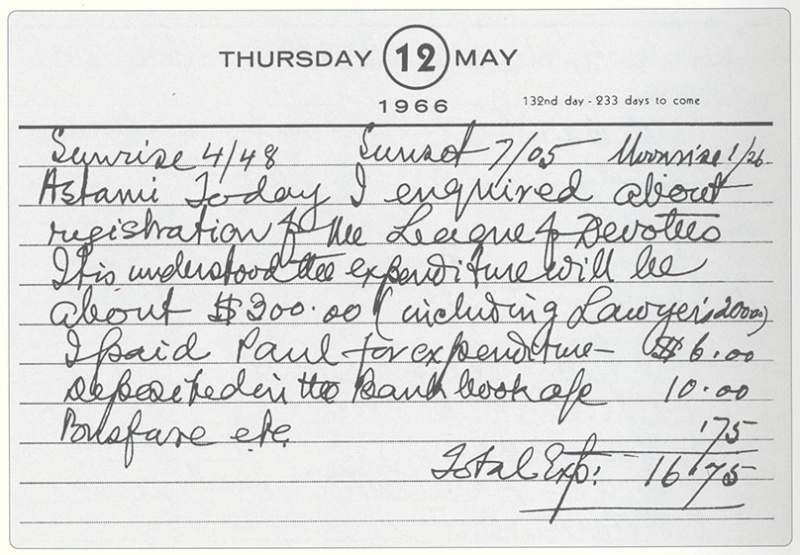 THURSDAY 12 MAY
1966
132nd day - 233 days to come
Sunrise 4/48 Sunset 7/05 Moonrise 1/26
Astami Today I enquired about
registration of the League of Devotees
It is understood the expenditure will be
about $300.00 (including Lawyer's 200.00)
I paid Paul for expenditure — $6.00
deposited in the Bank book a/c 10.00
Busfare etc. .75
Total Exp: 16.75